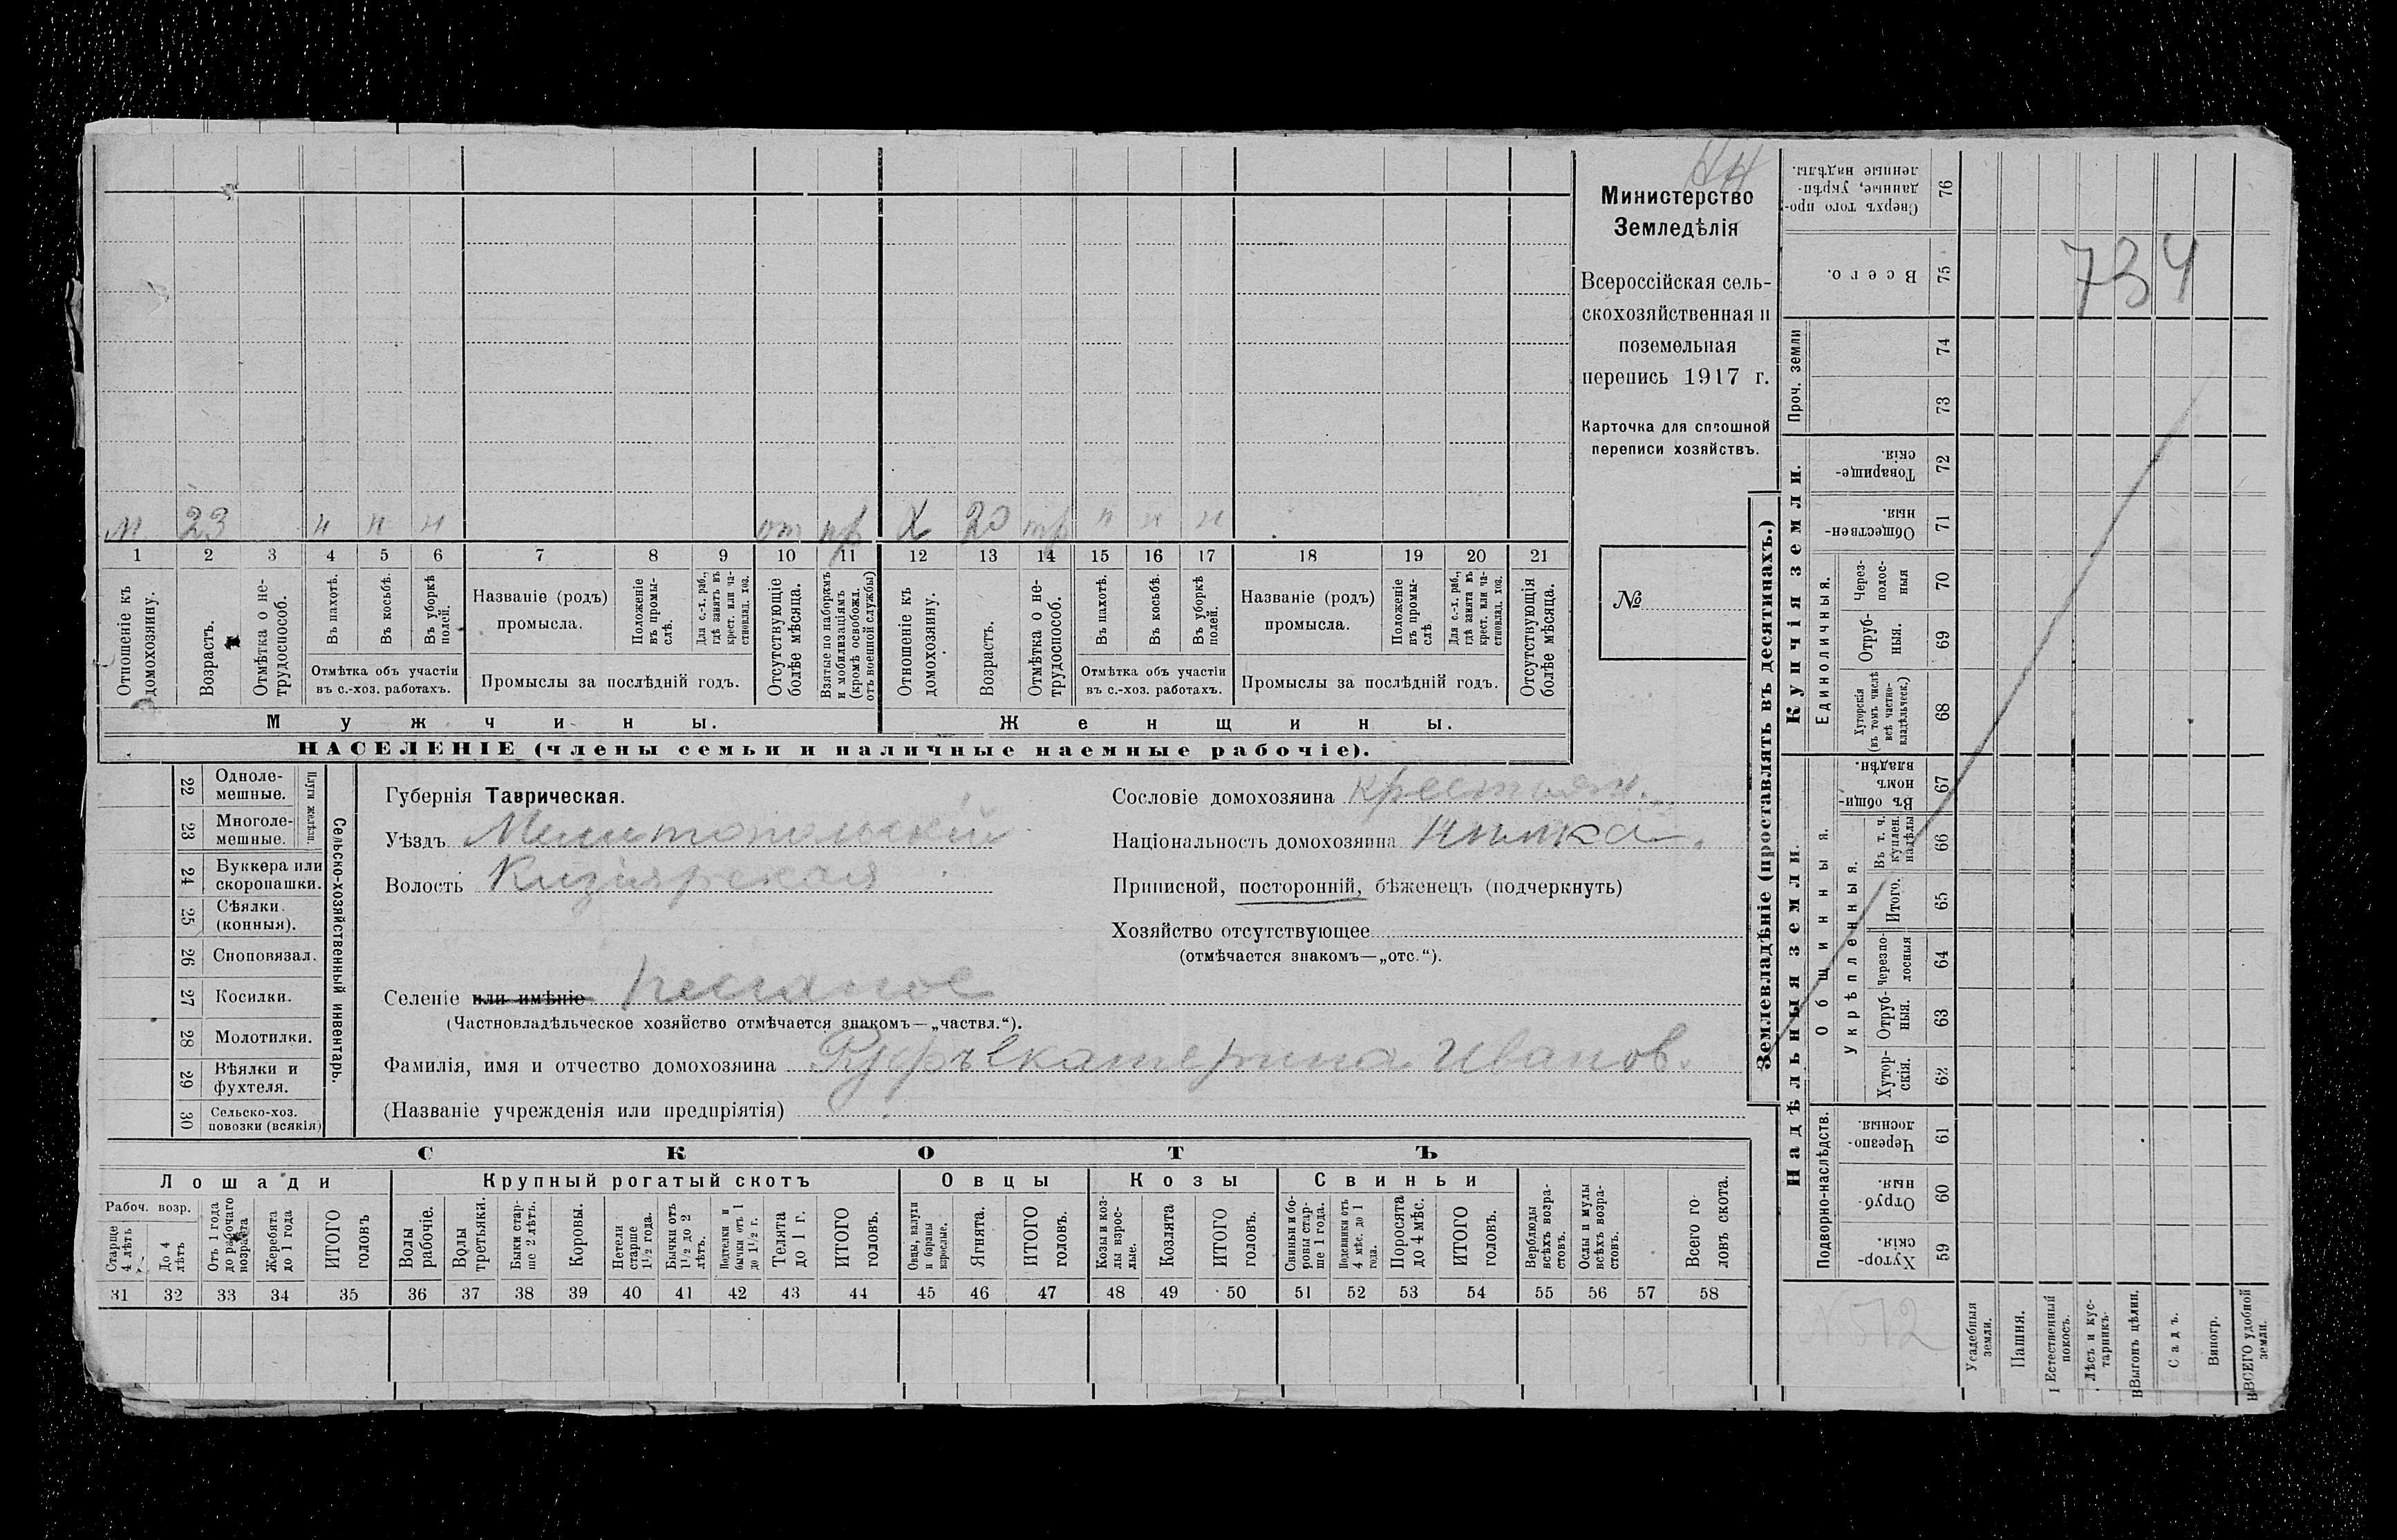 НН
Министерство
Земледѣлія
Всероссійская сель-
скохозяйственная и
поземельная
перепись 1917 г.
Карточка для сплошной
переписи хозяйствъ.
№
734
м 23 н н н от пр Х 20 тр н н н
1 2 3 4 5 6 7 8 9 10 11 12 13 14 15 16 17 18 19 20 21
Отношеніе къ домохозяину.
Возрастъ.
Отмѣтка о не-трудоспособ.
Въ пахотѣ.
Въ косьбѣ.
Въ уборкѣ полей.
Отмѣтка объ участіи
въ с.-хоз. работахъ.
Названіе (родъ)
промысла.
Положеніе въ промы-слѣ.
Для с.-х. раб., гдѣ занятъ въ крест. или ча-стновлад. хоз.
Промыслы за послѣдній годъ.
Отсутствующіе болѣе мѣсяца.
Взятые по наборамъ и мобилизаціямъ (кромѣ освобожд. отъ военной службы)
Отношеніе къ домохозяину.
Возрастъ.
Отмѣтка о не-трудоспособ.
Въ пахотѣ.
Въ косьбѣ.
Въ уборкѣ полей.
Отмѣтка объ участіи
въ с.-хоз. работахъ.
Названіе (родъ)
промысла.
Положеніе въ промы-слѣ
Для с.-х. раб., гдѣ занята въ крест. или ча-стновлад. хоз.
Промыслы за послѣдній годъ.
Отсутствующія болѣе мѣсяца.
Мужчины. Женщины.
НАСЕЛЕНІЕ (члены семьи и наличные наемные рабочіе).
Сельско-хозяйственный инвентарь.
Плуги желѣзн.
22 Однолемешные.
23 Многолемешные.
24 Буккера или скоропашки.
25 Сѣялки (конныя).
26 Сноповязал.
27 Косилки.
28 Молотилки.
29 Вѣялки и фухтеля.
30 Сельско-хоз. повозки (всякія)
Губернія Таврическая.
Уѣздъ Мелитопольскій
Волость Кизіярская
Селеніе или имѣніе
(Частновладѣльческое хозяйство отмѣчается знакомъ—„частвл.“).
Фамилія, имя и отчество домохозяина Руфъ Екатерина Иванов.
(Названіе учрежденія или предпріятія)
Сословіе домохозяина крестьян.
Національность домохозяина нѣмка.
Приписной, посторонній, бѣженецъ (подчеркнуть)
Хозяйство отсутствующее
(отмѣчается знакомъ—„отс.“).
СКОТЪ
Лошади Крупный рогатый скотъ Овцы Козы Свиньи
Рабоч. возр.
Старше 4 лѣтъ
До 4 лѣтъ
Отъ 1 года до рабочаго возраста
Жеребята до 1 года
ИТОГО головъ
Волы рабочіе.
Волы третьяки.
Быки стар-ше 2 лѣтъ.
Коровы.
Нетели старше 1½ года.
Бычки отъ 1½ до 2 лѣтъ.
Подтелки и бычки отъ 1 до 1½ г.
Телята до 1 г.
ИТОГО головъ.
Овцы, валухи и бараны взрослые.
Ягнята.
ИТОГО головъ.
Козы и коз-лы взрос-лые.
Козлята
ИТОГО головъ.
Свиньи и бо-ровы стар-ше 1 года.
Подсвинки отъ 4 мѣс. до 1 года.
Поросята до 4 мѣс.
ИТОГО головъ.
Верблюды всѣхъ возра-стовъ.
Ослы и мулы всѣхъ возра-стовъ.
Всего го-ловъ скота.
31 32 33 34 35 36 37 38 39 40 41 42 43 44 45 46 47 48 49 50 51 52 53 54 55 56 57 58
Землевладѣніе (проставлять въ десятинахъ.)
Купчія земли.
Надѣльныя земли.
Сверхъ того про-данные, укрѣп-ленные надѣлы. 76
Всего. 75
Проч. земли
74
73
Товарище-скія. 72
Обществен-ныя. 71
Единоличныя.
Через-полос-ныя 70
Отруб-ныя. 69
Хуторскія (въ томъ числѣ всѣ частно-владѣльческ.) 68
Общинныя.
Въ общин-номъ владѣн. 67
Укрѣпленныя.
Въ т. ч. куплен. надѣлы 66
Итого. 65
Черезпо-лосныя 64
Отруб-ныя. 63
Хутор-скія. 62
Подворно-наслѣдств.
Черезпо-лосныя. 61
Отруб-ныя. 60
Хутор-скія. 59
N 512
Усадебныя земли.
Пашня.
Естественный покосъ.
Лѣсъ и кус-тарникъ.
Выгонъ цѣлин.
Садъ.
Виногр.
ВСЕГО удобной земли.